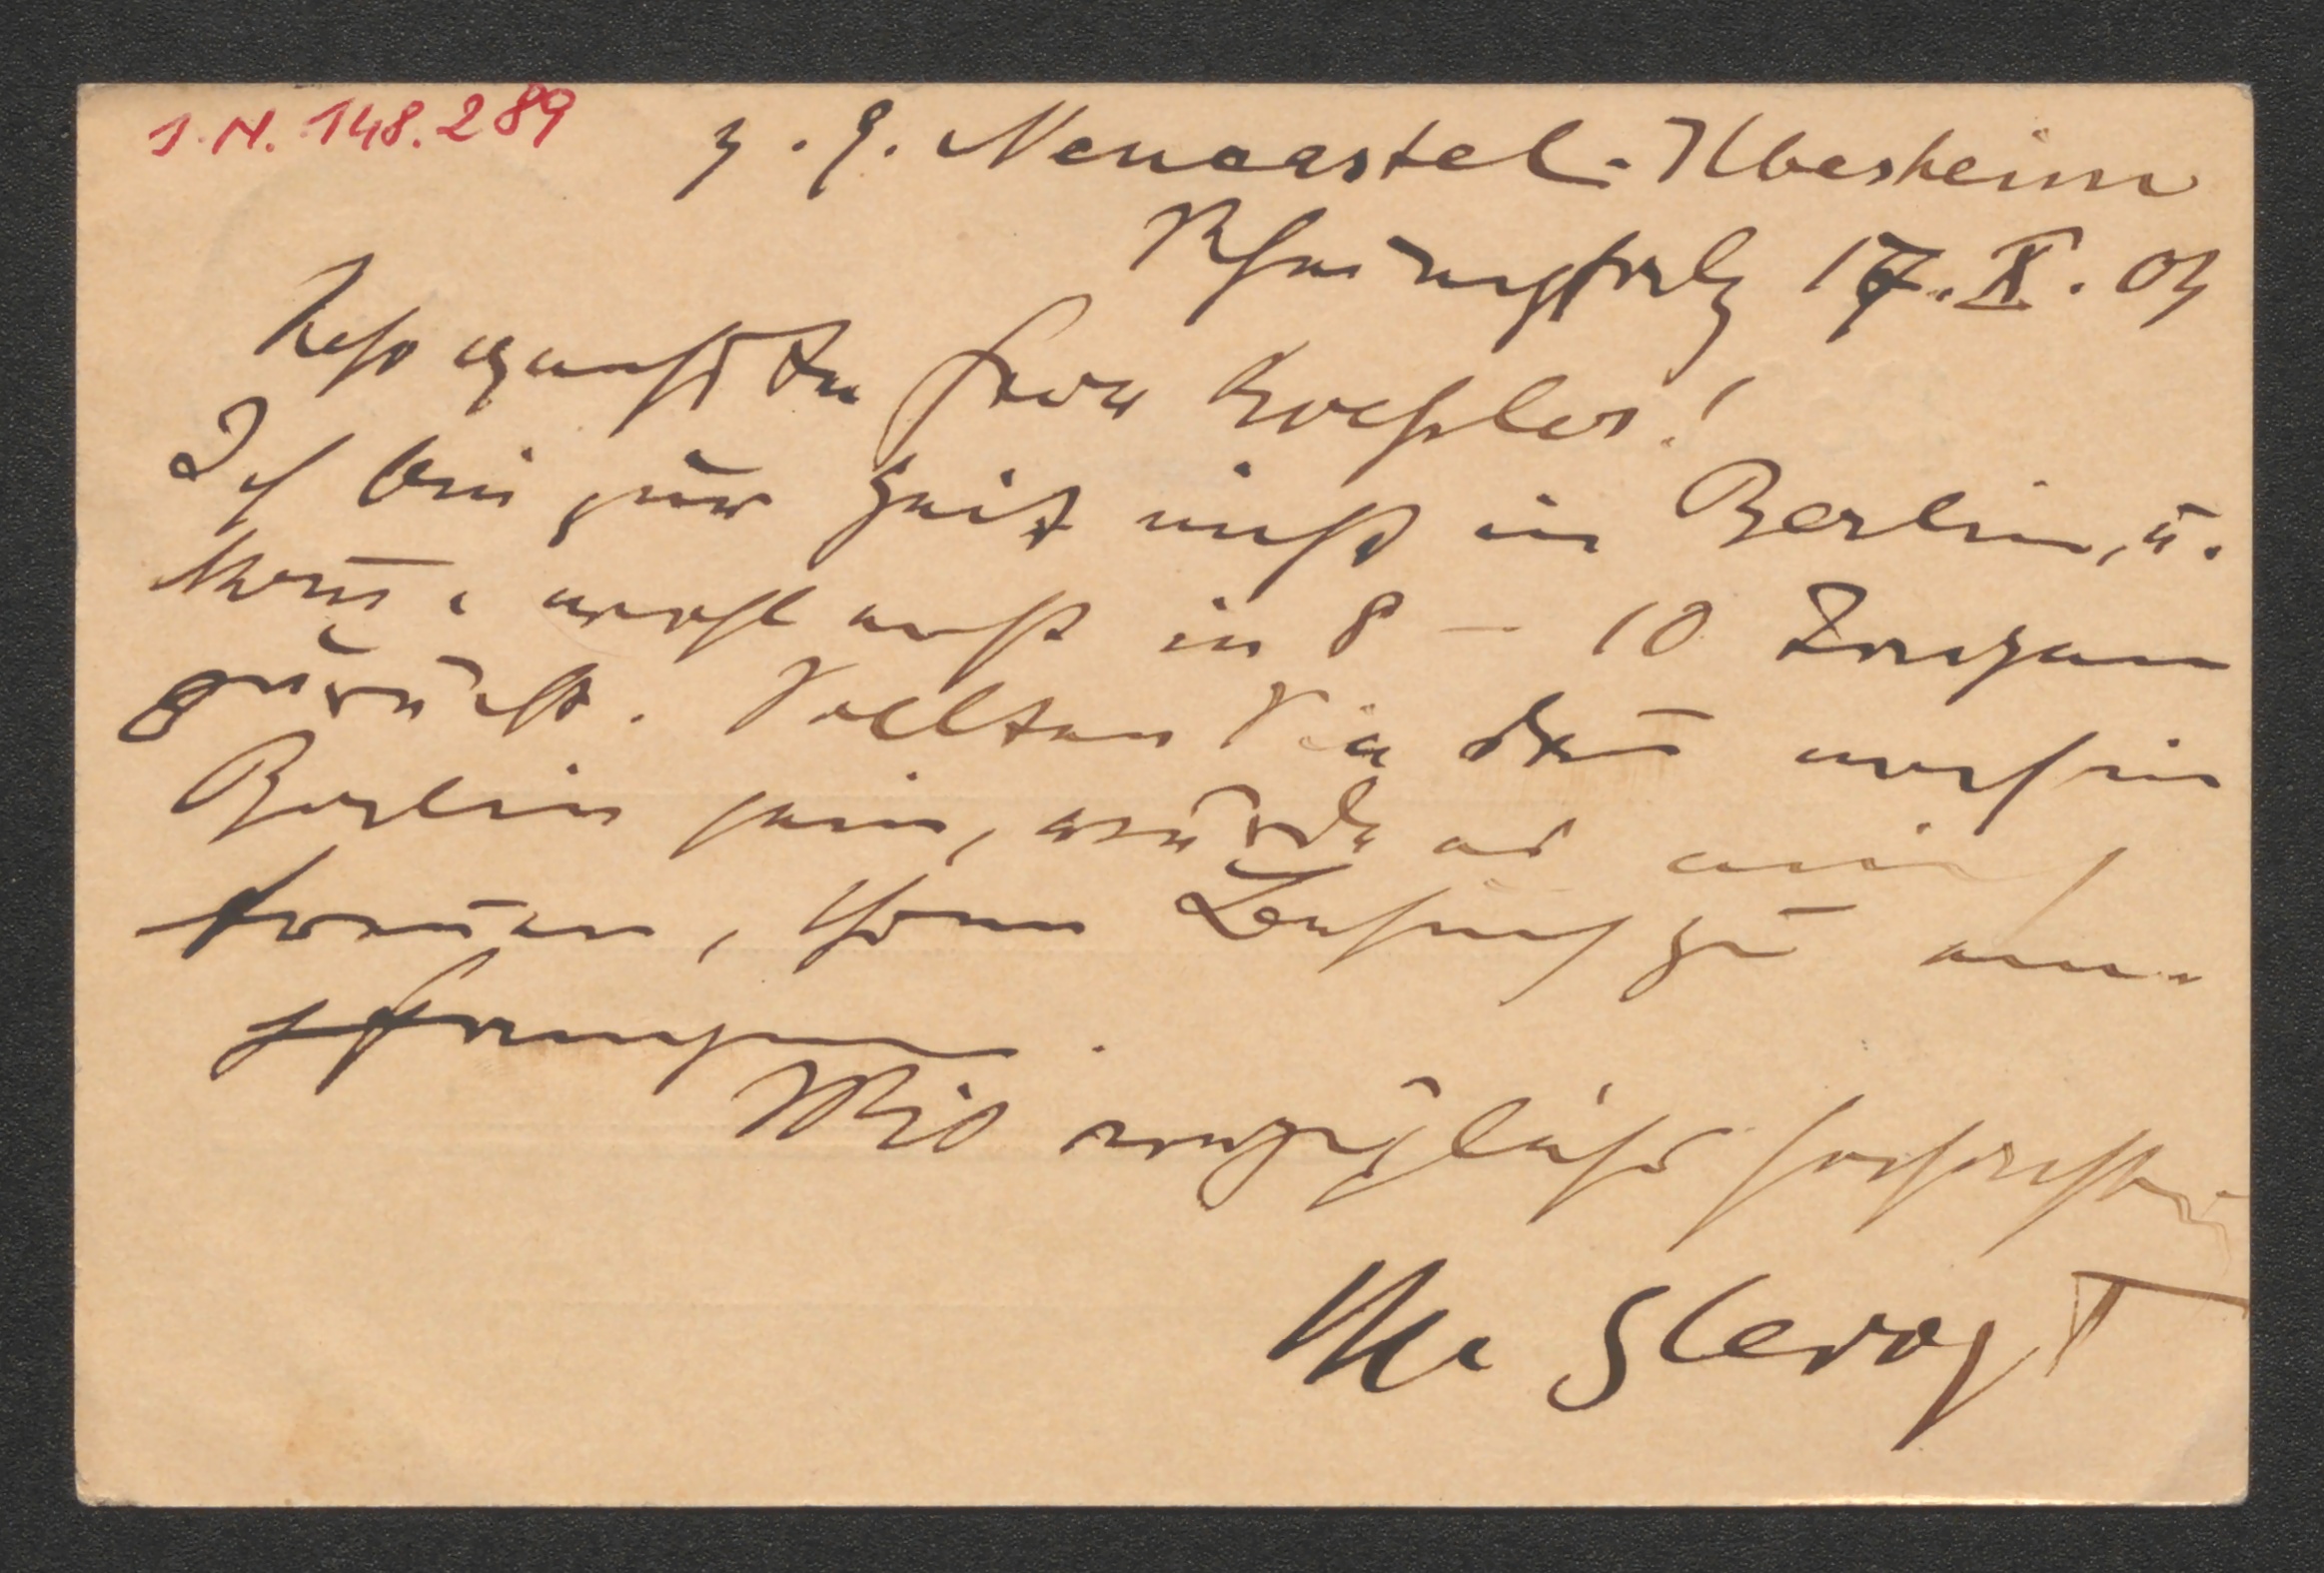 I.N. 148.289
z. Z. Neucastel. Ilbesheim
Rheinpfalz 17. X. 03
Sehr geehrter Herr Koehler!
Ich bin zur Zeit nicht in Berlin, u.
kom̅e wohl erst in 8 – 10 Tagen
zurück. Sollten Sie dan̅ noch in
Berlin sein, würde es mich
freuen, Ihren Besuch zu em-
pfangen.
Mit vorzüglicher Hochachtung
Slevogt